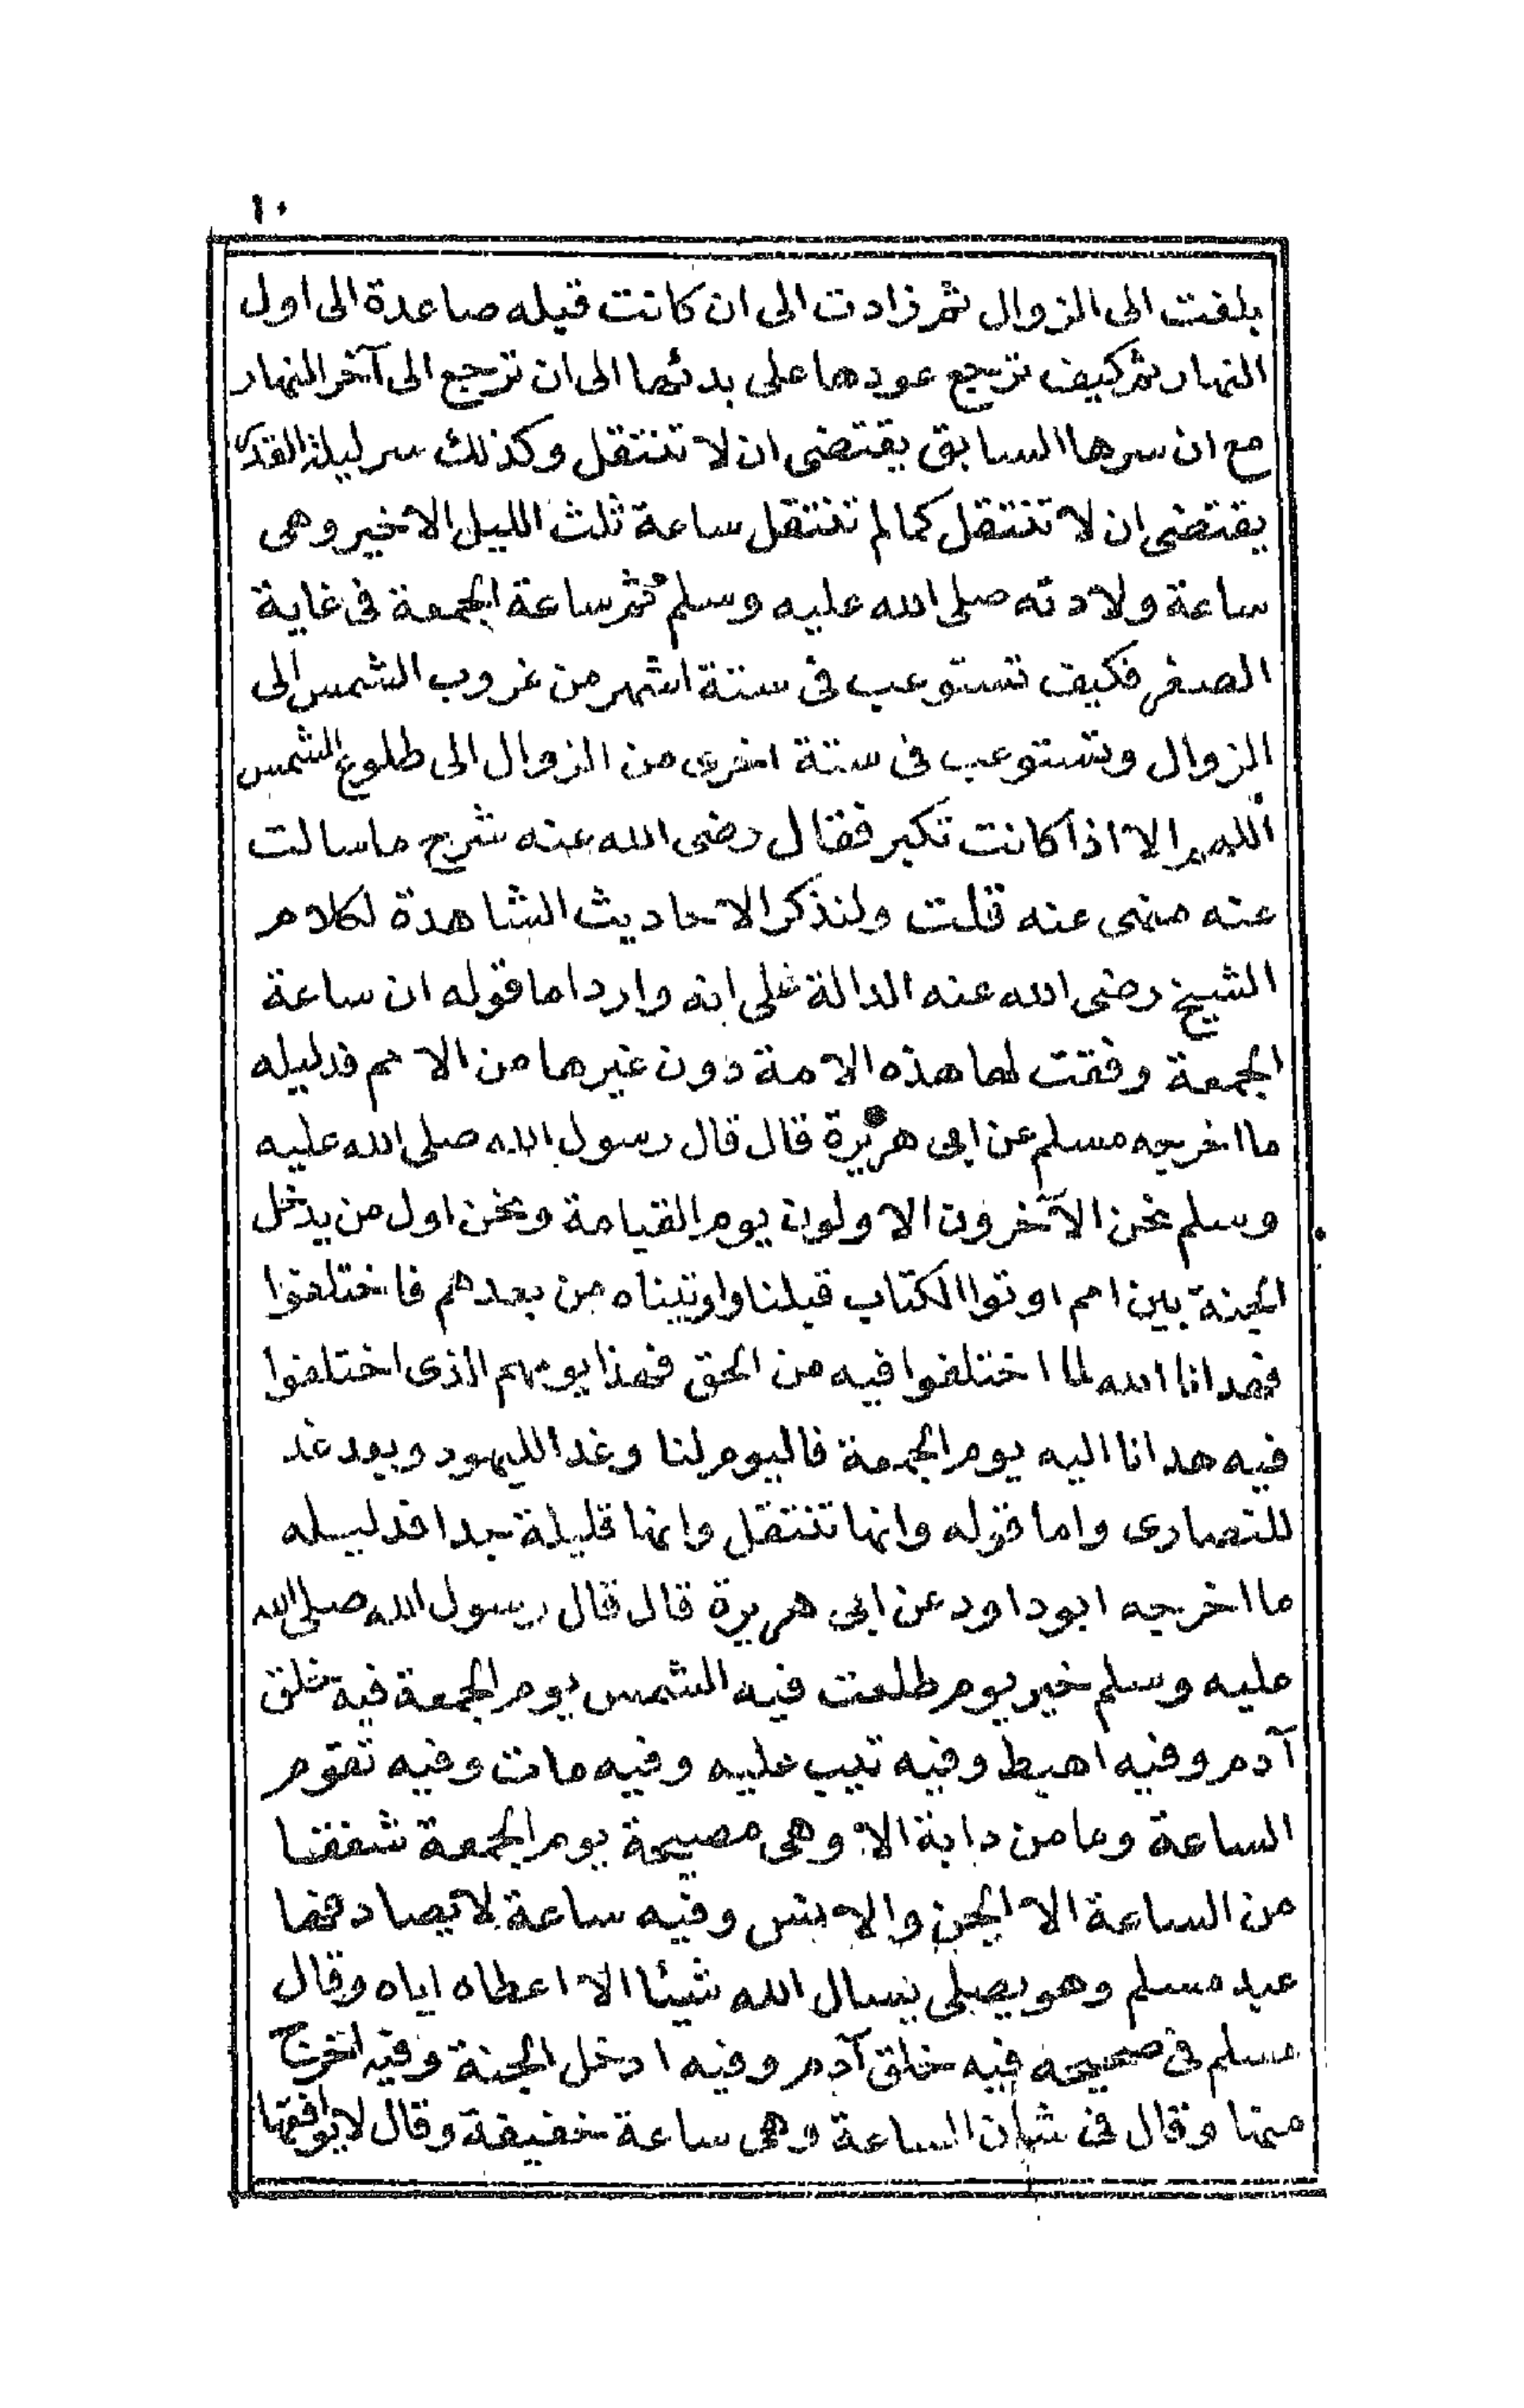 ١٠
بلغت الى الزوال ثم زادت الى ان كانت قبله صاعدة الى اول
النهار ثم كيف ترجع عودها على بدئها الى ان ترجع الى آخر النهار
مع ان سرها السابق يقتضى ان لا تنتقل وكذلك سر ليلة القدر
يقتضى ان لا تنتقل كما لم تنتقل ساعة ثلث الليل الاخير وهى
ساعة ولادته صلى الله عليه وسلم ثم ساعة الجمعة فى غاية
الصغر فكيف تستوعب فى ستة اشهر من غروب الشمس الى
الزوال وتستوعب فى ستة اخرى من الزوال الى طلوع الشمس
اللهم الا اذا كانت تكبر فقال رضى الله عنه شرح ما سالت
عنه منهى عنه قلت ولنذكر الاحاديث الشاهدة لكلام
الشيخ رضى الله عنه الدالة على انه وارد اما قوله ان ساعة
الجمعة وفقت لها هذه الامة دون غيرها من الامم فدليله
ما اخرجه مسلم عن ابى هريرة قال قال رسول الله صلى الله عليه
وسلم نحن الآخرون الاولون يوم القيامة ونحن اول من يدخل
الجنة بين امم اوتوا الكتاب قبلنا واوتيناه من بعدهم فاختلفوا
فهدانا الله لما اختلفوا فيه من الحق فهذا يومهم الذى اختلفوا
فيه هدانا اليه يوم الجمعة فاليوم لنا وغدا لليهود وبعد غد
للنصارى واما قوله وانها تنتقل وانها قليلة جدا فدليله
ما اخرجه ابو داود عن ابى هريرة قال قال رسول الله صلى الله
عليه وسلم خير يوم طلعت فيه الشمس يوم الجمعة فيه خلق
آدم وفيه اهبط وفيه تيب عليه وفيه مات وفيه تقوم
الساعة وما من دابة الا وهى مصيحة يوم الجمعة شفقا
من الساعة الا الجن والانس وفيه ساعة لا يصادفها
عبد مسلم وهو يصلى يسال الله شيئا الا اعطاه اياه وقال
مسلم فى صحيحه فيه خلق آدم وفيه ادخل الجنة وفيه اخرج
منها وقال فى شان الساعة وهى ساعة خفيفة وقال لا يوافقها